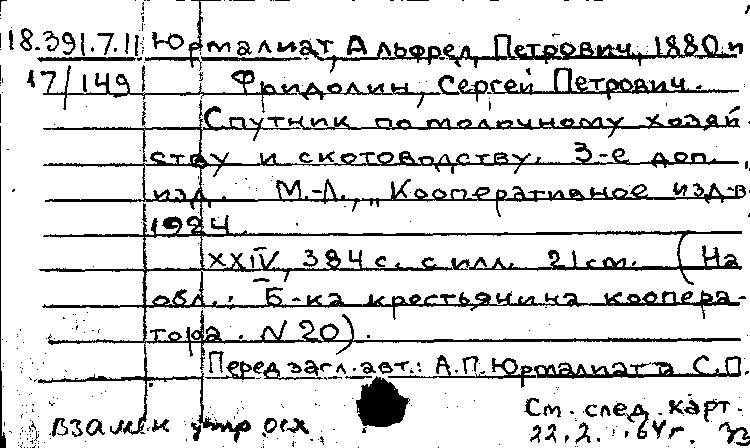 18.391.7.11 Юрмалиат, Альфред Петрович, 1880 и
17/149 Фридолин, Сергей Петрович.
Спутник по молочному хозяй
ству и скотоводству. 3-е доп.
изд. М.-Л., „Кооперативное изд-в
1924
XXIV, 384 с. с илл. 21 см. (На
обл.: Б-ка крестьянина коопера-
тора. N 20).
Перед загл. авт.: А.П. Юрмалиат и С.П.
См. след. карт.
взамен
22.2. 64 г.